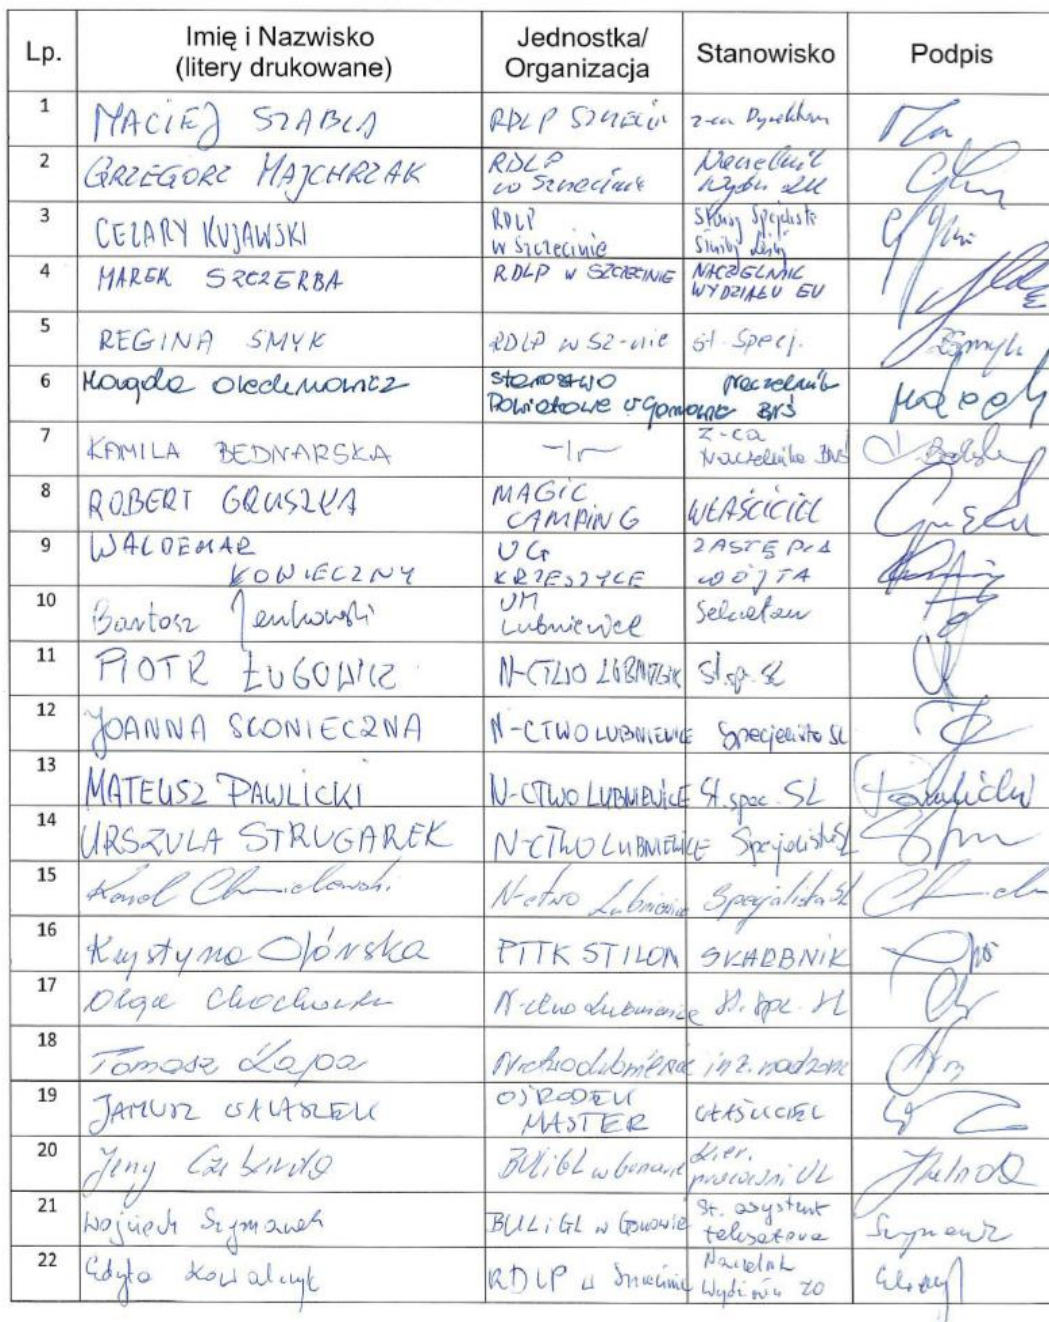 Lp. Imię i Nazwisko (litery drukowane) Jednostka/ Organizacja Stanowisko Podpis
1 MACIEJ SZABLA RDLP SZCZECIN z-ca Dyrektora
2 GRZEGORZ MAJCHRZAK RDLP w Szczecinie Naczelnik Wydz.
3 CEZARY KUJAWSKI RDLP w Szczecinie Starszy Specjalista Służby Leśnej
4 MAREK SZCZERBA RDLP w SZCZECINIE NACZELNIK WYDZIAŁU EU
5 REGINA SMYK RDLP w Sz-nie st. Specj.
6 Magda Olechnowicz Starostwo Powiatowe w Gorzowie naczelnik BNŚ
7 KAMILA BEDNARSKA -||- z-ca Naczelnika BNŚ
8 ROBERT GRUSZKA MAGIC CAMPING WŁAŚCICIEL
9 WALDEMAR KONIECZNY UG KRZESZYCE ZASTĘPCA WÓJTA
10 Bartosz Jankowski UM Lubniewice Sekretarz
11 PIOTR ŁUGOWICZ N-CTWO LUBNIEWICE St. sp. SL
12 JOANNA SKONIECZNA N-CTWO LUBNIEWICE Specjalista SL
13 MATEUSZ PAWLICKI N-CTWO LUBNIEWICE St. spec. SL Pawlicki
14 URSZULA STRUGAREK N-CTWO LUBNIEWICE Specjalista SL
15 Karol Chmielewski N-ctwo Lubniewice Specjalista SL
16 Krystyna PTTK STILON SKARBNIK
17 Olga N-ctwo Lubniewice St. spc. SL
18 Tomasz Łapa N-ctwo Lubniewice inż. nadzoru
19 JANUSZ GALASZEK OŚRODEK MASTER WŁAŚCICIEL
20 Jerzy BULiGL w Gorzowie kier. pracowni UL
21 Wojciech Szymanek BULiGL w Gorzowie St. asystent
22 Edyta Kowalczyk RDLP w Szczecinie Naczelnik Wydziału ZO